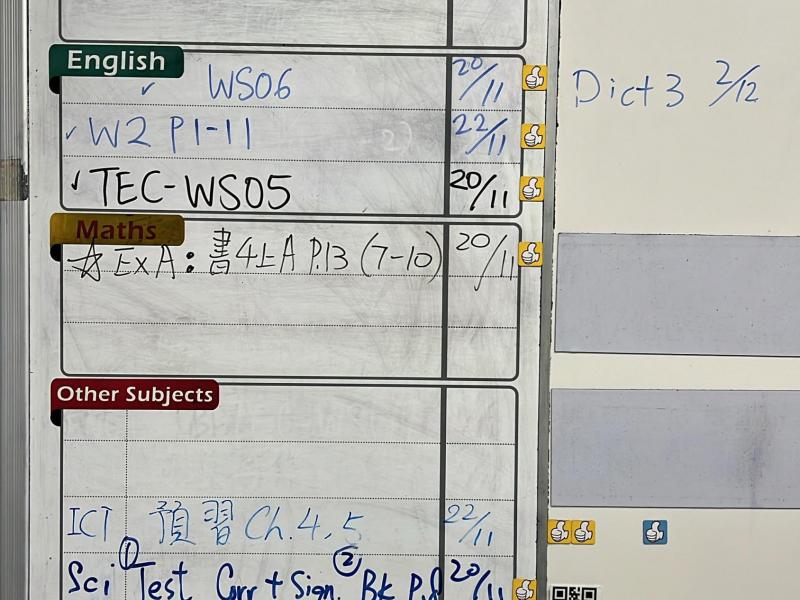 English
✓ WS06 20/11
Dict 3 2/12
✓ W2 P1-11 22/11
✓ TEC-WS05 20/11
Maths
☆ Ex A: 書4上A P.13 (7-10) 20/11
Other Subjects
ICT 預習 Ch.4,5 22/11
Sci ① Test Corr + Sign. ② Bk P.8 20/11